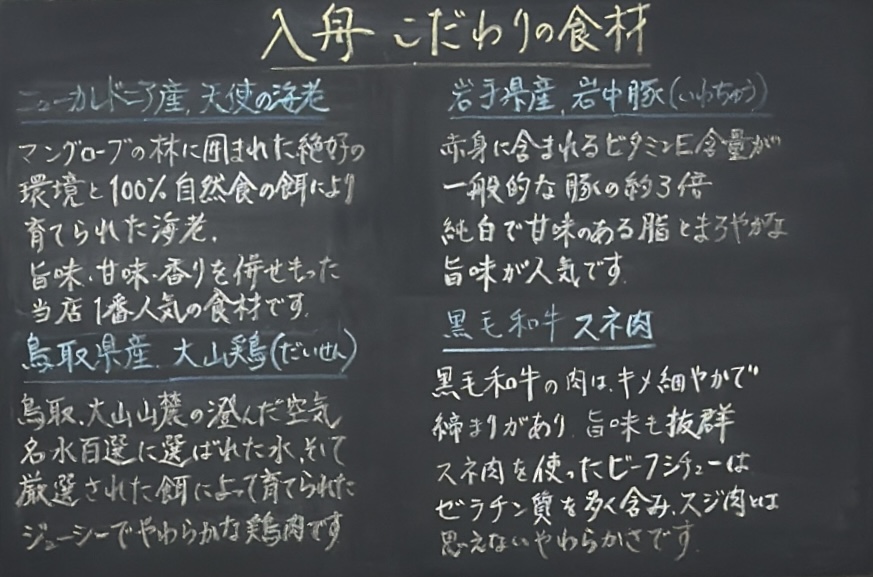 入舟 こだわりの食材
ニューカレドニア産、天使の海老
マングローブの林に囲まれた絶好の
環境と100%自然食の餌により
育てられた海老、
旨味、甘味、香りを併せもった
当店1番人気の食材です。
鳥取県産、大山鶏(だいせん)
鳥取、大山山麓の澄んだ空気
名水百選に選ばれた水、そして
厳選された餌によって育てられた
ジューシーでやわらかな鶏肉です
岩手県産、岩中豚(いわちゅう)
赤身に含まれるビタミンE含量が
一般的な豚の約3倍
純白で甘味のある脂とまろやかな
旨味が人気です。
黒毛和牛 スネ肉
黒毛和牛の肉は、キメ細やかで
締まりがあり、旨味も抜群
スネ肉を使ったビーフシチューは
ゼラチン質を多く含み、スジ肉とは
思えないやわらかさです。